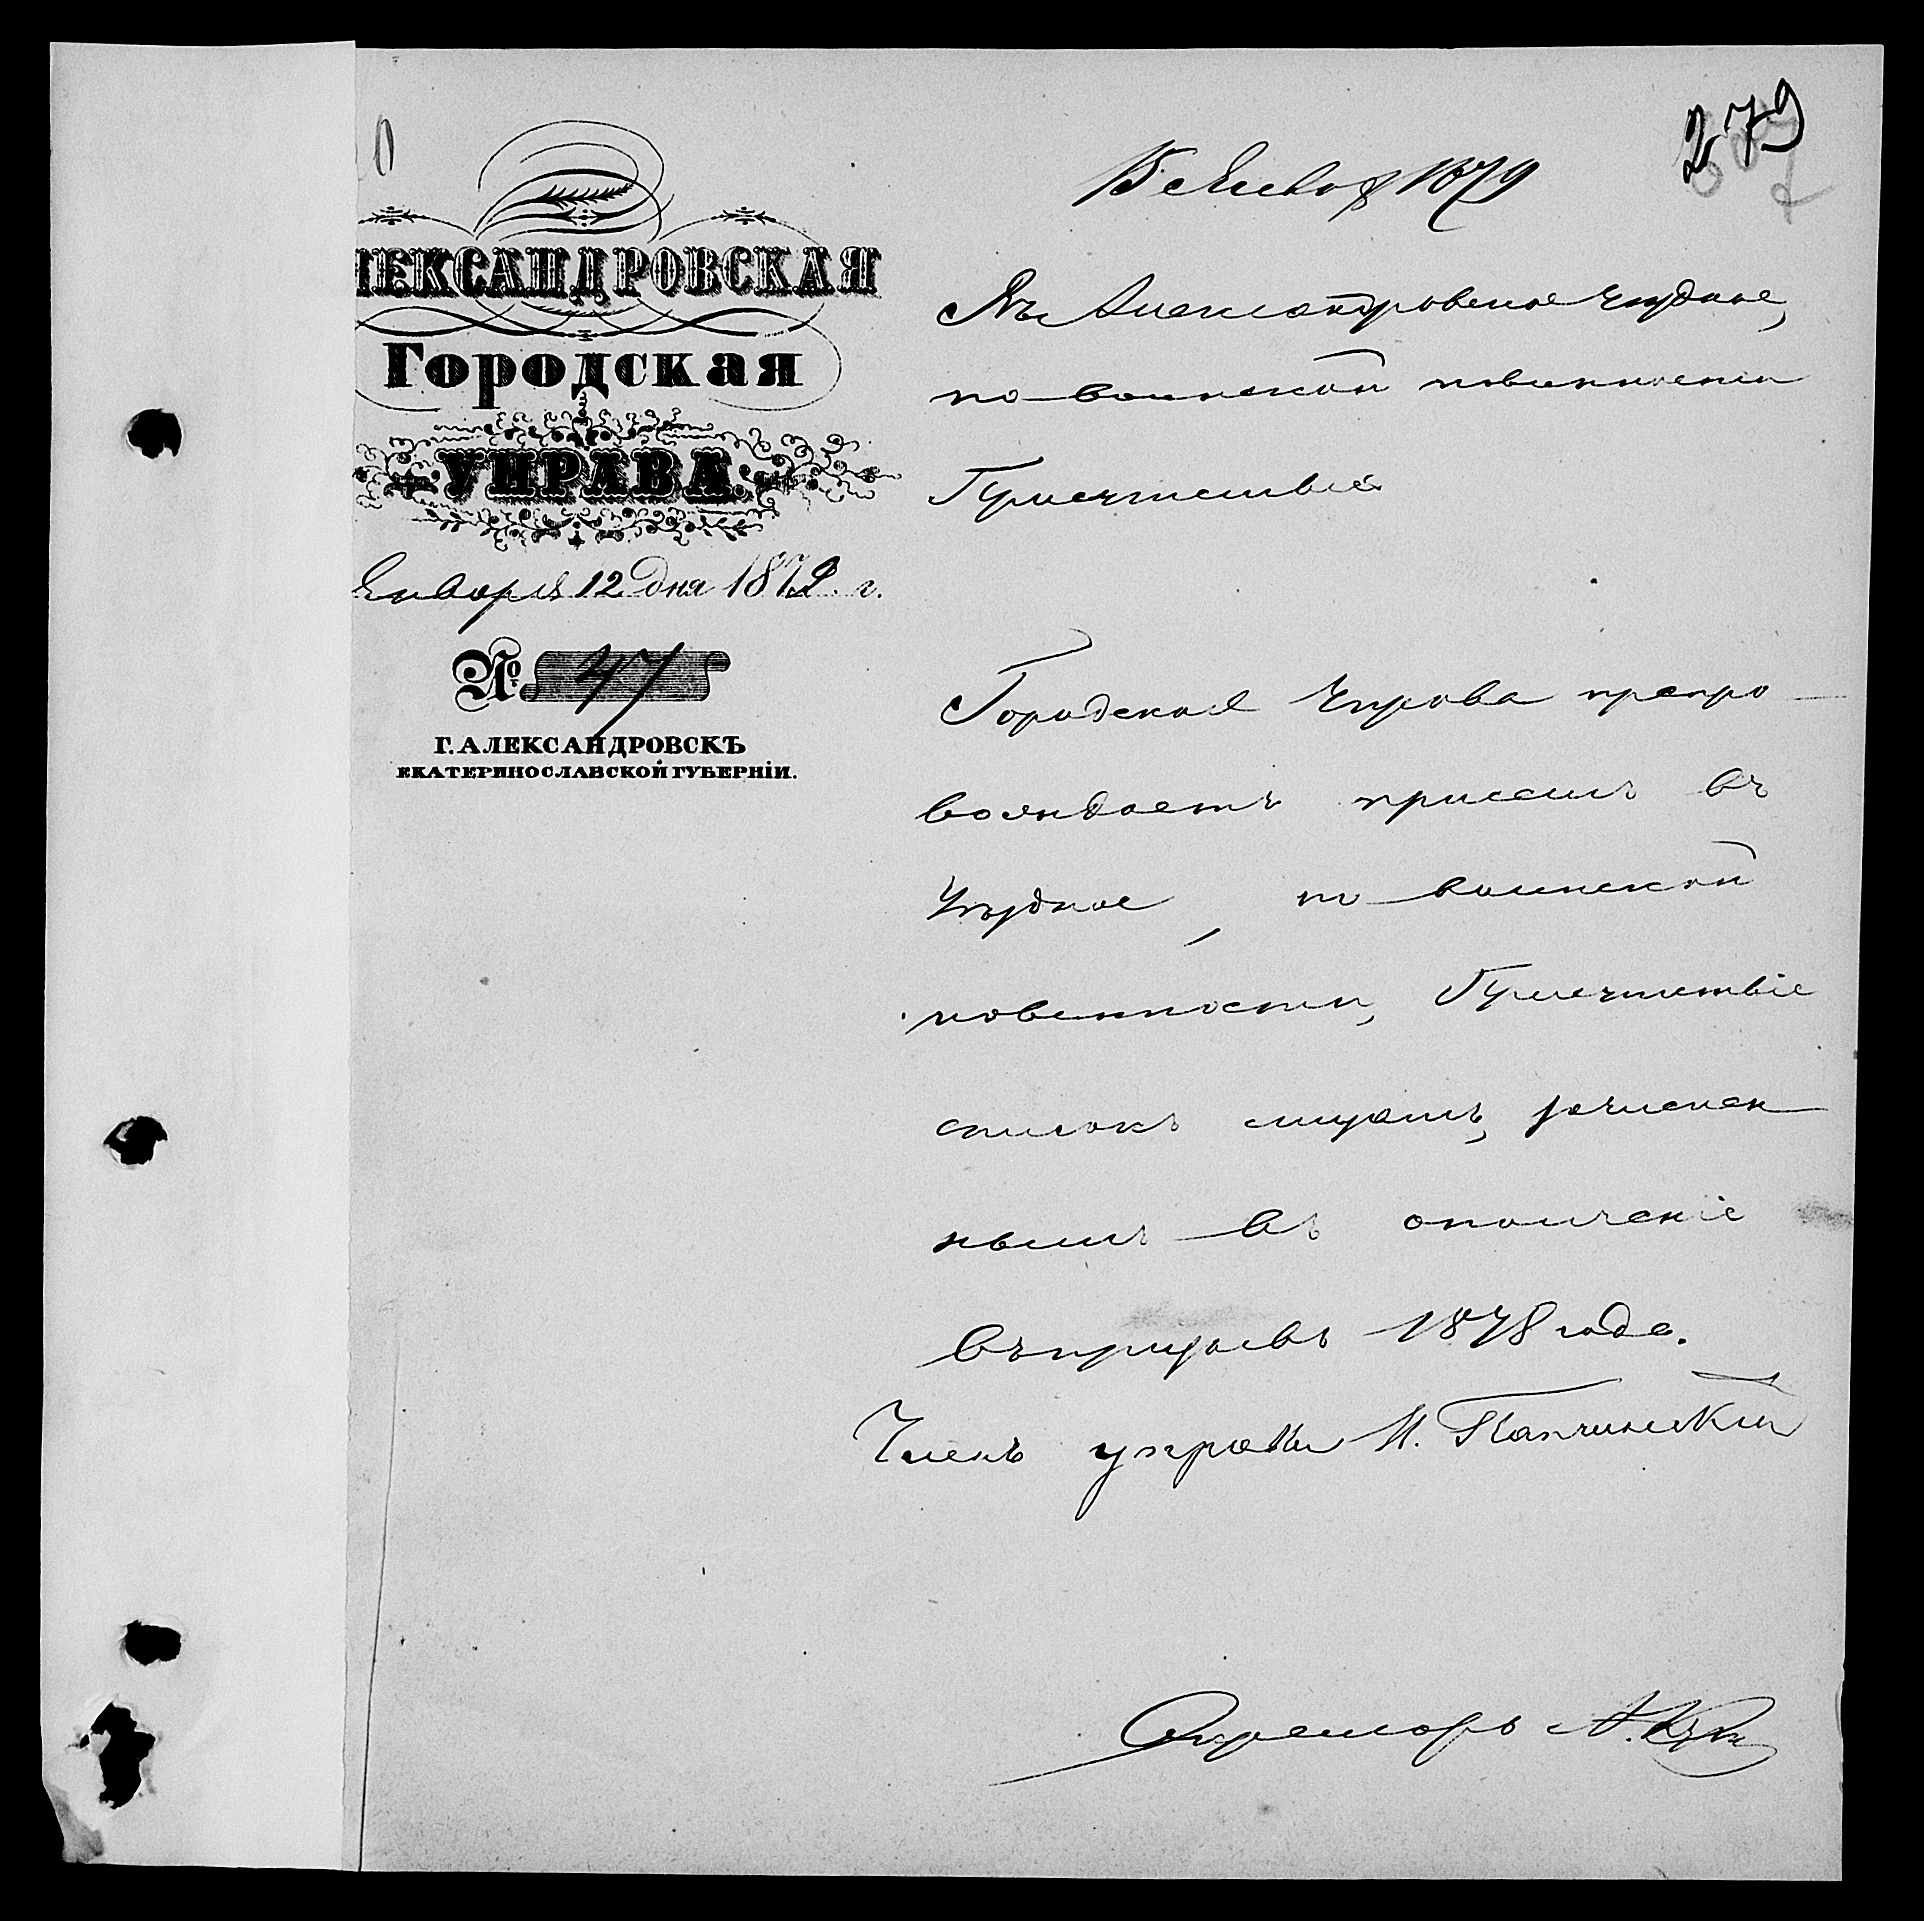 279
15 Января 1879
ЛЕКСАНДРОВСКАЯ
Городская
УПРАВА.
Января 12 дня 1879 г.
№ 47
Г. АЛЕКСАНДРОВСКЪ
ЕКАТЕРИНОСЛАВСКОЙ ГУБЕРНІИ.
Въ Александровское Уѣздное,
по воинской повинности
Присутствіе
Городская Управа препро
вождаетъ при семъ въ
Уѣздное, по воинской
повинности, Присутствіе
списокъ лицамъ, зачислен
нымъ въ ополченіе
въ призывъ 1878 года.
Членъ управы И. Папчинскій
Секретарь